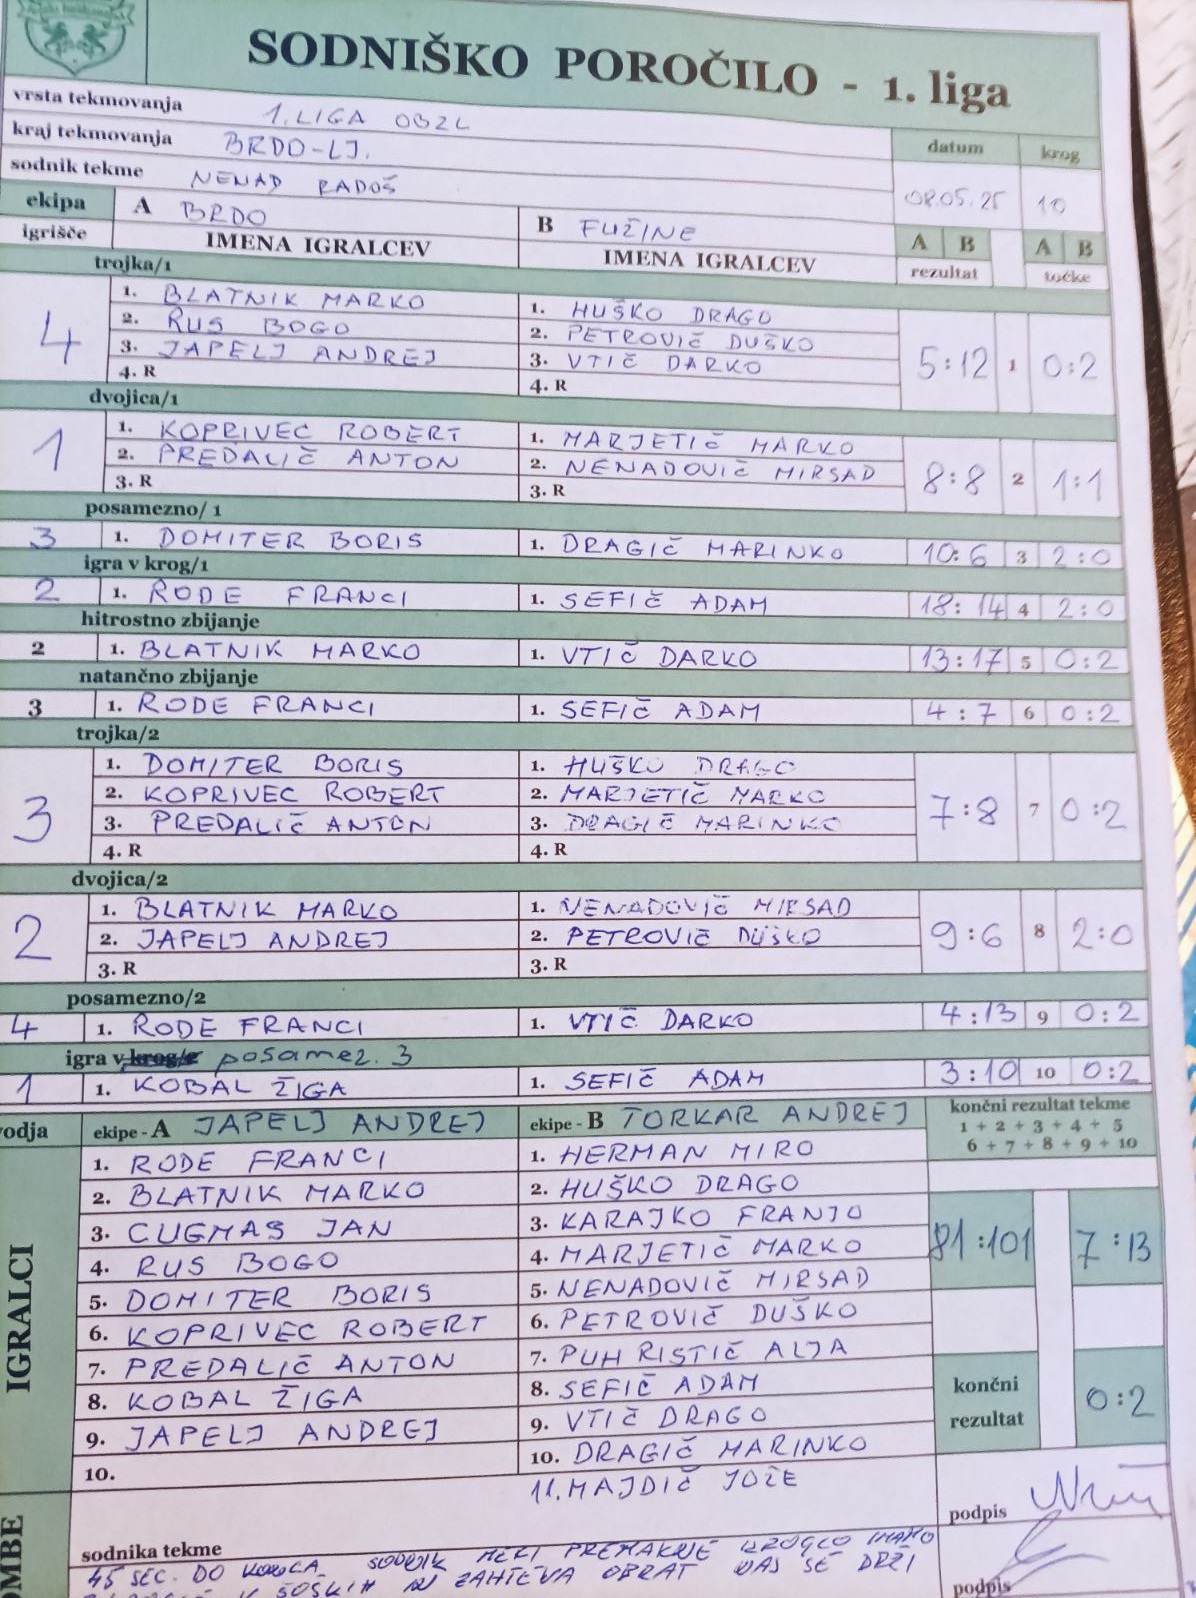 SODNIŠKO POROČILO - 1. liga
vrsta tekmovanja 1. LIGA OBZL
kraj tekmovanja BRDO-LJ.
datum krog
sodnik tekme NENAD RADOŠ
08.05.25 10
ekipa A BRDO B FUŽINE
igrišče IMENA IGRALCEV IMENA IGRALCEV
A B A B
rezultat točke
trojka/1
4
1. BLATNIK MARKO 1. HUŠKO DRAGO
2. RUS BOGO 2. PETROVIČ DUŠKO
3. JAPELJ ANDREJ 3. VTIČ DARKO
4. R 4. R
5:12 1 0:2
dvojica/1
1
1. KOPRIVEC ROBERT 1. MARJETIČ MARKO
2. PREDALIČ ANTON 2. NENADOVIČ MIRSAD
3. R 3. R
8:8 2 1:1
posamezno/ 1
3 1. DOMITER BORIS 1. DRAGIČ MARINKO 10:6 3 2:0
igra v krog/1
2 1. RODE FRANCI 1. SEFIČ ADAM 18:14 4 2:0
hitrostno zbijanje
2 1. BLATNIK MARKO 1. VTIČ DARKO 13:17 5 0:2
natančno zbijanje
3 1. RODE FRANCI 1. SEFIČ ADAM 4:7 6 0:2
trojka/2
3
1. DOMITER BORIS 1. HUŠKO DRAGO
2. KOPRIVEC ROBERT 2. MARJETIČ MARKO
3. PREDALIČ ANTON 3. DRAGIČ MARINKO
4. R 4. R
7:8 7 0:2
dvojica/2
2
1. BLATNIK MARKO 1. NENADOVIČ MIRSAD
2. JAPELJ ANDREJ 2. PETROVIČ DUŠKO
3. R 3. R
9:6 8 2:0
posamezno/2
4 1. RODE FRANCI 1. VTIČ DARKO 4:13 9 0:2
igra v krog/2 posamez. 3
1 1. KOBAL ŽIGA 1. SEFIČ ADAM 3:10 10 0:2
vodja ekipe - A JAPELJ ANDREJ ekipe - B TORKAR ANDREJ
končni rezultat tekme
1 + 2 + 3 + 4 + 5
6 + 7 + 8 + 9 + 10
IGRALCI
1. RODE FRANCI 1. HERMAN MIRO
2. BLATNIK MARKO 2. HUŠKO DRAGO
3. CUGMAS JAN 3. KARAJKO FRANJO
4. RUS BOGO 4. MARJETIČ MARKO
81:101 7:13
5. DOMITER BORIS 5. NENADOVIČ MIRSAD
6. KOPRIVEC ROBERT 6. PETROVIČ DUŠKO
7. PREDALIČ ANTON 7. PUH RISTIČ ALJA
8. KOBAL ŽIGA 8. SEFIČ ADAM
9. JAPELJ ANDREJ 9. VTIČ DRAGO
10. 10. DRAGIČ MARINKO
11. MAJDIČ JOŽE
končni
rezultat
0:2
podpis
sodnika tekme
45 SEC. DO KONCA SODNIK MERI PREMAKNE KROGLO IMAMO
ZAHTEVA OBRAT DRŽI
podpis